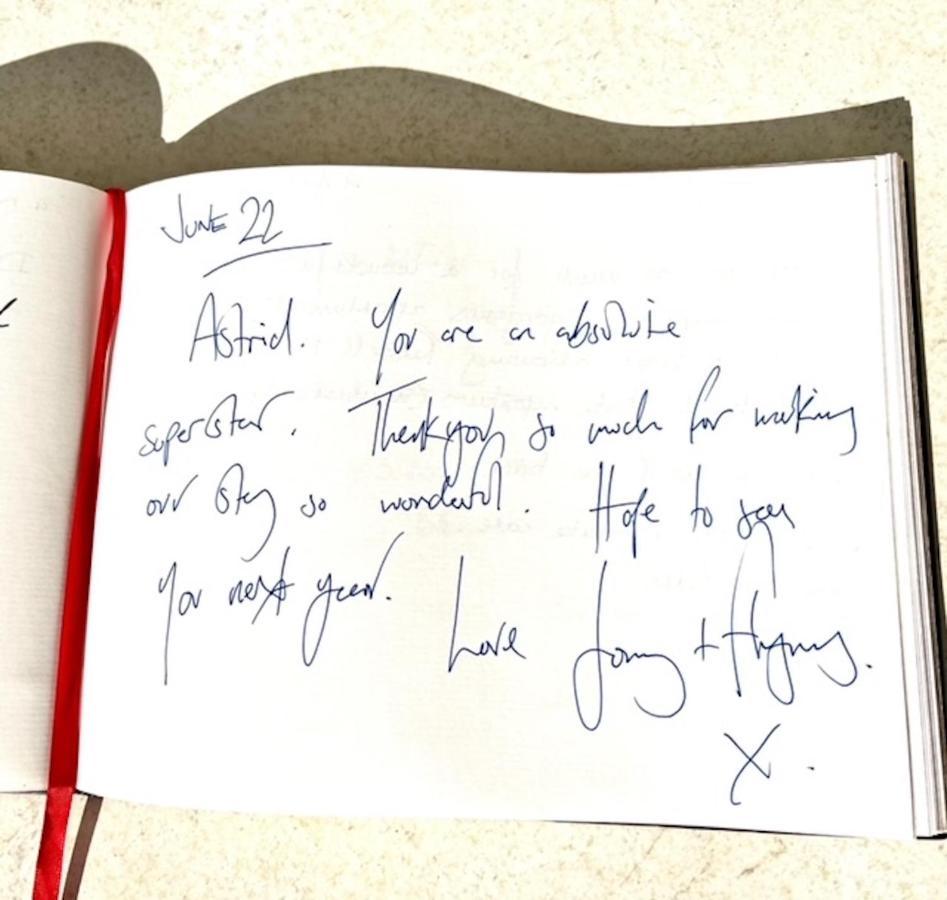 JUNE 22
Astrid. You are an absolute
superstar. Thank you so much for making
our stay so wonderful. Hope to see
you next year.
Love + 
X.